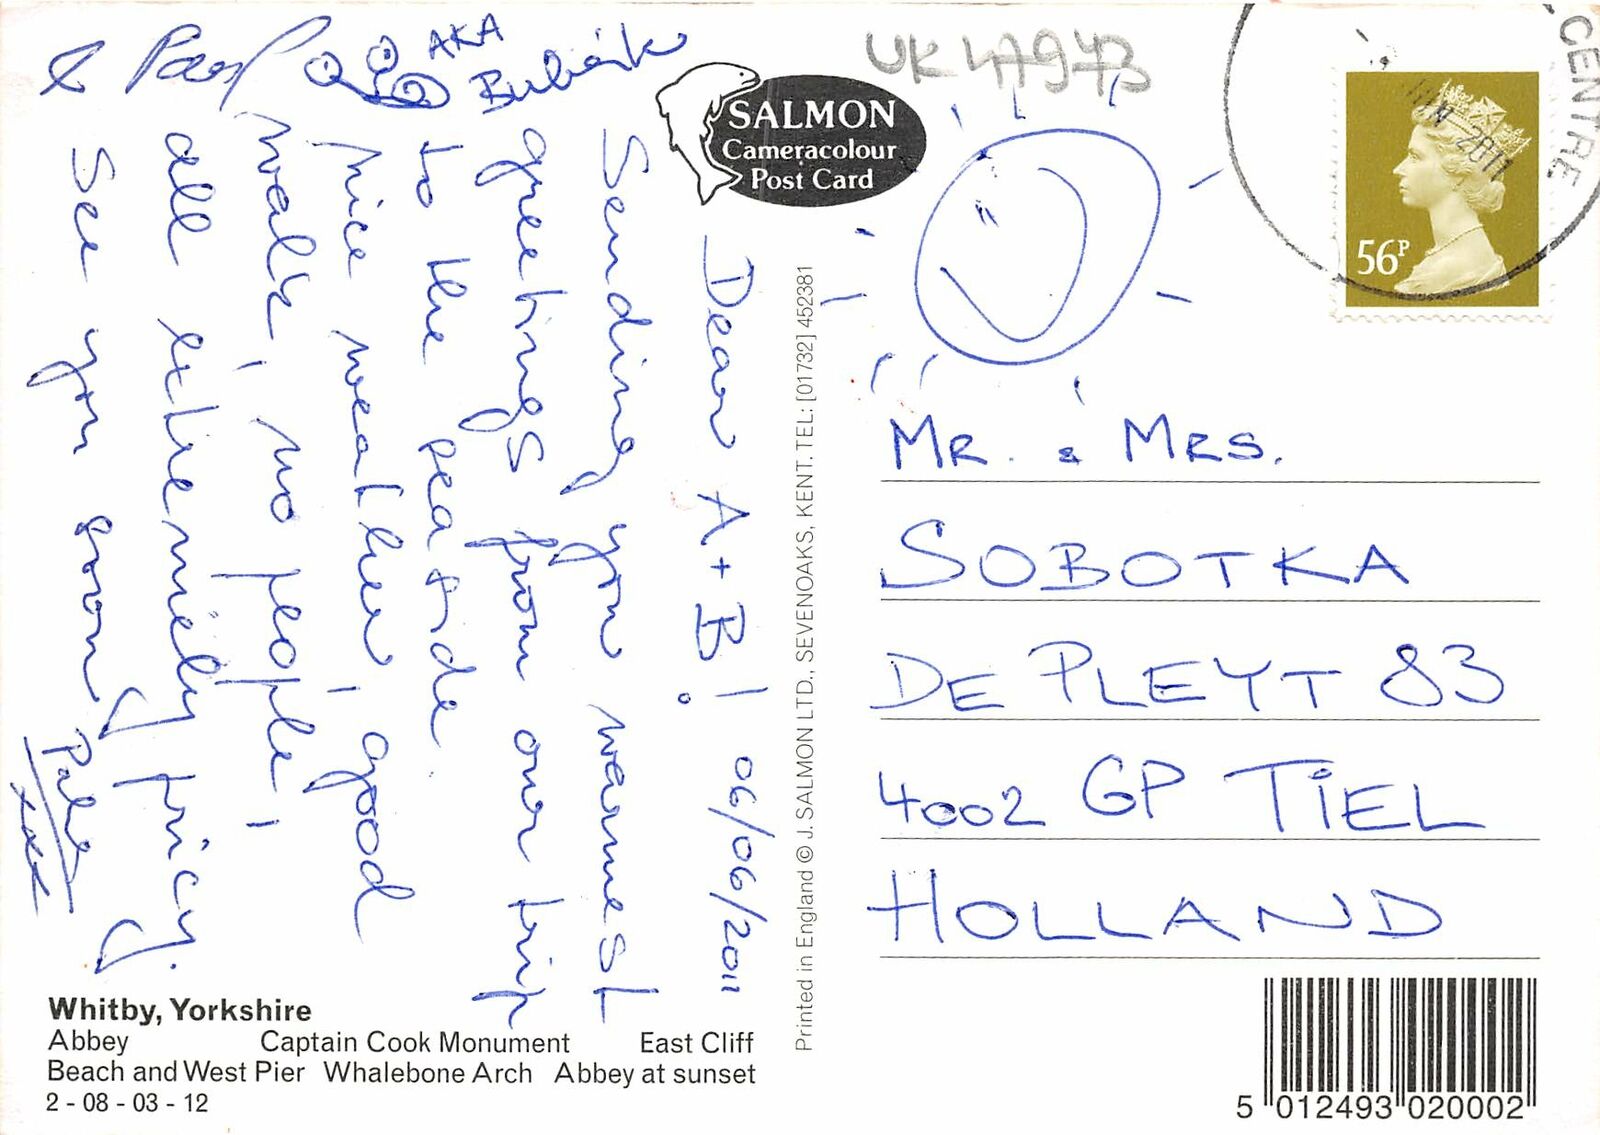 UK 47973
SALMON
Cameracolour
Post Card
CENTRE
JUN 2011
56P
06/06/2011
Dear A+B!
Sending you warmest
greetings from our trip
to the seaside.
Nice weather, good
walk, no people,
all extremely pricy.
See you soon,
xxx
&
AKA
MR. & MRS.
SOBOTKA
DE PLEYT 83
4002 GP TIEL
HOLLAND
Printed in England © J. SALMON LTD., SEVENOAKS, KENT. TEL: [01732] 452381
Whitby, Yorkshire
Abbey Captain Cook Monument East Cliff
Beach and West Pier Whalebone Arch Abbey at sunset
2 - 08 - 03 - 12
5 012493 020002